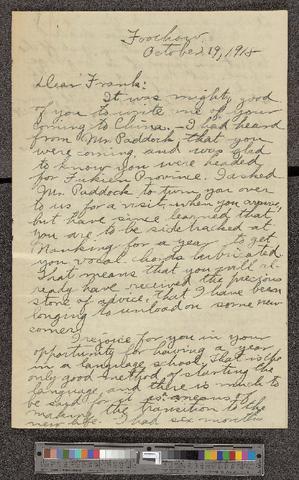 Foochow,
October 29, 1915
Dear Frank:
It was mighty good
of you to write me of your
coming to China. – I had heard
from Mr. Paddock that you
were coming, and was glad
to know you were headed
for Fukien Province. I asked
Mr. Paddock to turn you over
to us for a visit, when you arrive,
but have since learned that
you are to be sidetracked at
Nanking for a year, to get
you vocal chords lubricated.
That means that you will al-
ready have received the precious
store of advice, that I have been
longing to unload on some new
comer.
I rejoice for you in your
opportunity for having a year
in a language school. That is the
only good method of starting the
language, and there is much to
be said for it as means of
making the transition to the
new life. I had six months